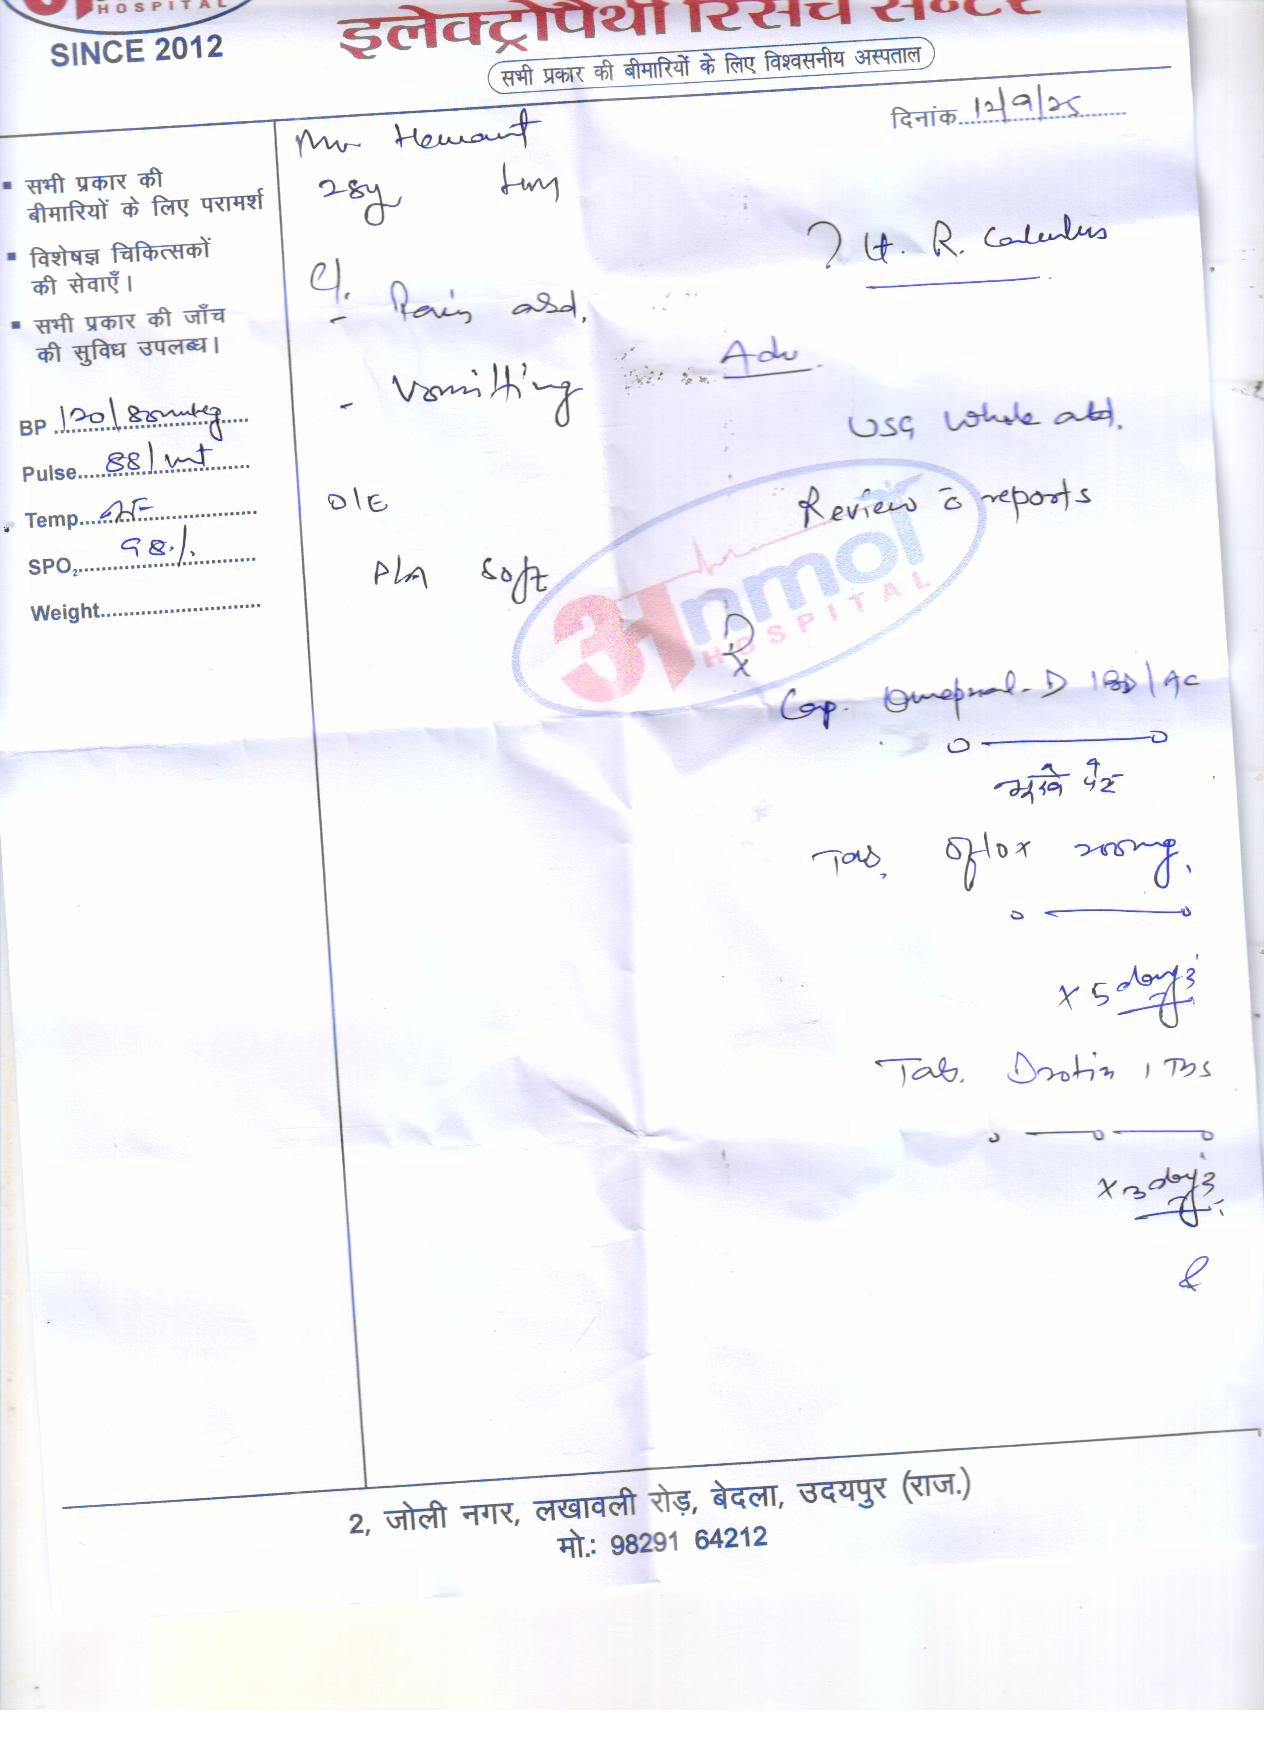 HOSPITAL
SINCE 2012
इलेक्ट्रोपैथी रिसर्च सेन्टर
सभी प्रकार की बीमारियों के लिए विश्वसनीय अस्पताल
दिनांक 12/9/25
Mr Hemant
28y
? Lt. R. Calculus
C/.
- Pain abd.
- Vomitting
Adv.
USG Whole abd.
Review c̄ reports
O/E
P/A soft
▪ सभी प्रकार की
बीमारियों के लिए परामर्श
▪ विशेषज्ञ चिकित्सकों
की सेवाएँ।
▪ सभी प्रकार की जाँच
की सुविध उपलब्ध।
BP 120/80mmhg
Pulse 88/mt
Temp
SPO₂ 98%
Weight
अnmol
HOSPITAL
Rx
Cap. Omeprazol-D 1BD/AC
o — o
भूखे पेट
Tab. Oflox 200mg.
o — o
x 5 days
Tab. Drotin 1 TDS
o — o — o
x 3 days
2, जोली नगर, लखावली रोड़, बेदला, उदयपुर (राज.)
मो.: 98291 64212